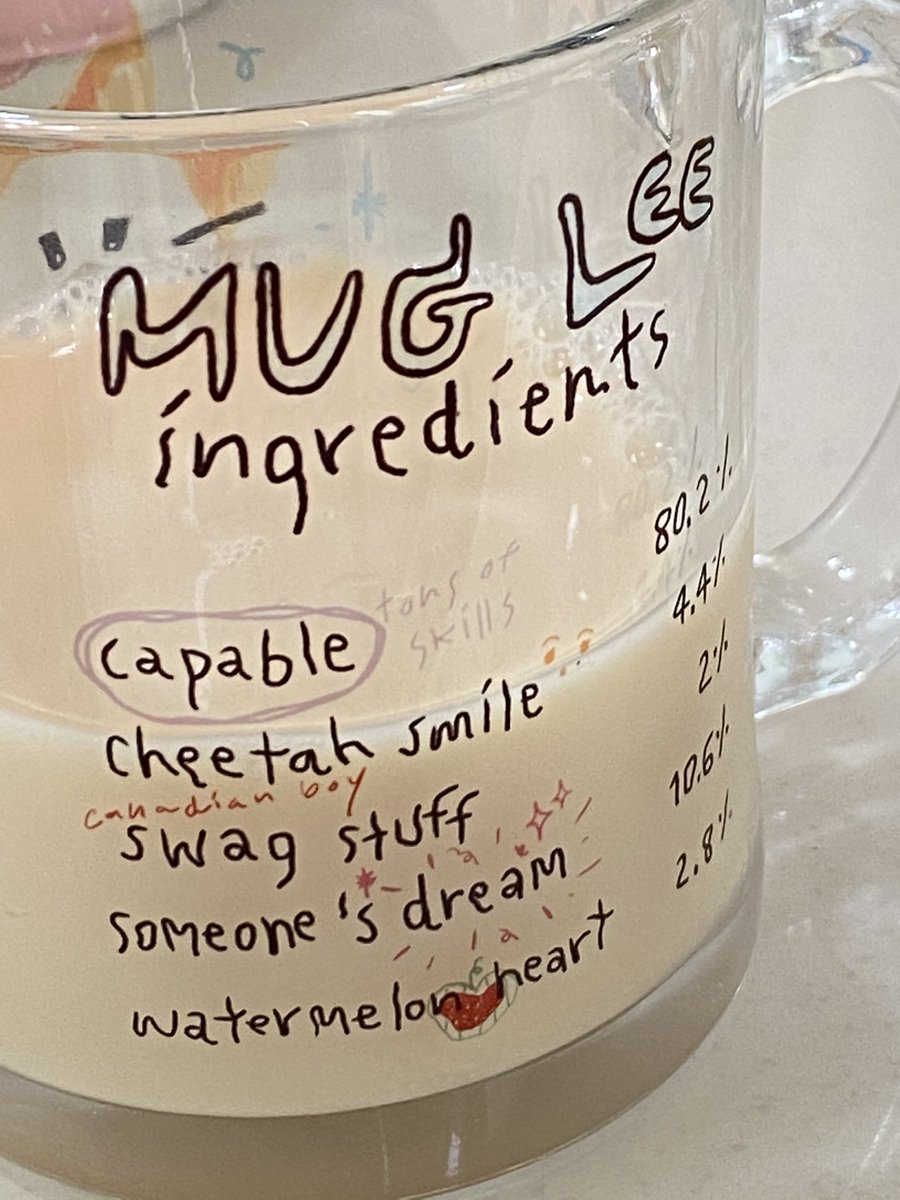 MUG LEE
ingredients
80.2%
tons of
skills
capable
4.4%
cheetah smile
2%
canadian boy
swag stuff
10.6%
someone's dream
2.8%
watermelon heart